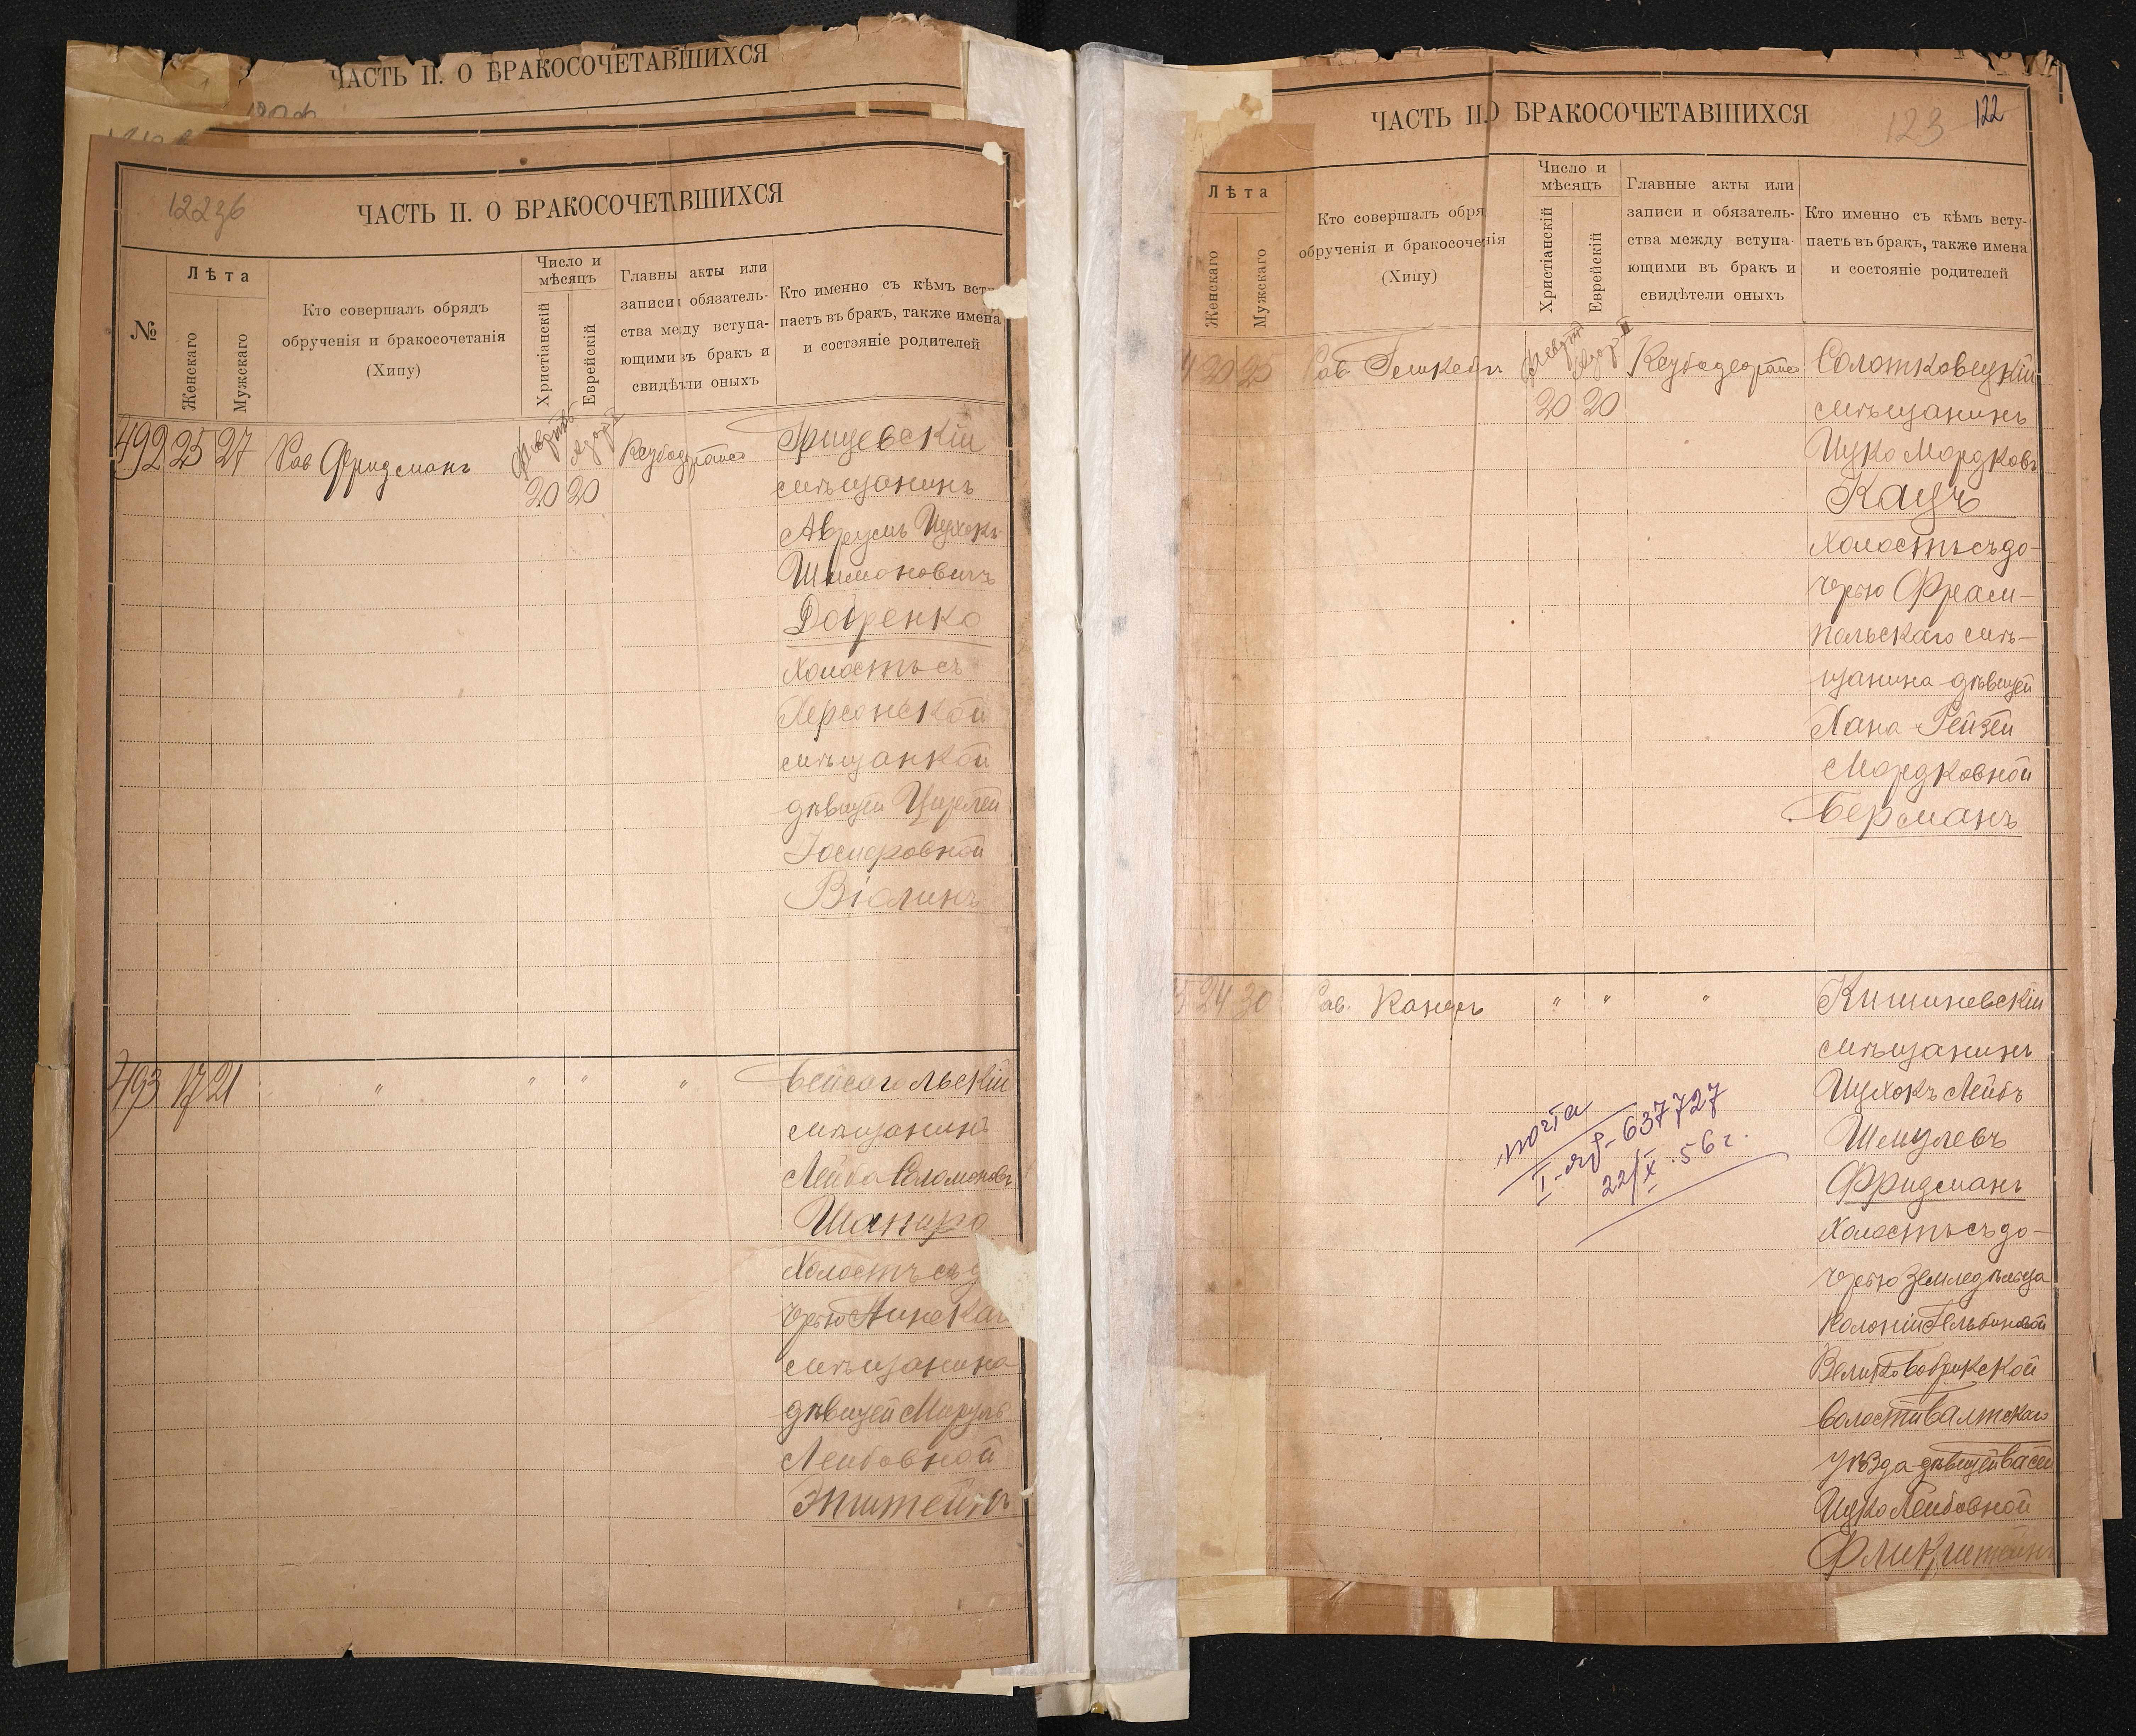 ЧАСТЬ II. О БРАКОСОЧЕТАВШИХСЯ
122 об
ЧАСТЬ II. О БРАКОСОЧЕТАВШИХСЯ
№
Лѣта
Женскаго
Мужскаго
Кто совершалъ обрядъ
обрученія и бракосочетанія
(Хипу)
Число и
мѣсяцъ
Христіанскій
Еврейскій
Главны акты или
записи обязатель-
ства между вступа-
ющими въ бракъ и
свидѣтели оныхъ
Кто именно съ кѣмъ всту
паетъ въ бракъ, также имена
и состояніе родителей
492 25 27 Рав Фридманъ
20 20
Грицевскій
мѣщанинъ
Аврумъ Ицхокъ
Шимоновичъ
Добренко
холостъ съ
Херсонской
мѣщанкой
дѣвицей Цирлей
Іосифовной
Віолинъ
493 17 21 " " " "
Бейсагольскій
мѣщанинъ
Лейба Соломоновъ
Шапиро
Холостъ съ д
черью Минскаг
мѣщанина
дѣвицей
Лейбовной
Эпштейнъ
ЧАСТЬ II О БРАКОСОЧЕТАВШИХСЯ
123
122
Лѣта
Женскаго
Мужскаго
Кто совершалъ обря
обрученія и бракосочетанія
(Хипу)
Число и
мѣсяцъ
Христіанскій
Еврейскій
Главные акты или
записи и обязатель-
ства между вступа-
ющими въ бракъ и
свидѣтели оныхъ
Кто именно съ кѣмъ всту-
паетъ въ бракъ, также имена
и состояніе родителей
4 20 25 Рав
20 20
Солотковецкій
мѣщанинъ
Ицко Мордковъ
Кацъ
холостъ съ до-
черью Фрам-
польскаго мѣ-
щанина дѣвицей
Хана-Рейзей
Мордковной
Берманъ
5 24 30 Рав. " " "
Кишиневскій
мѣщанинъ
Ицхокъ Лейбъ
Шмулевъ
Фридманъ
холостъ съ до-
черью земледѣльца
колоніи Гельбиновой
Велико Бобрикской
волости Балтскаго
уѣзда дѣвицей Басей
Ицко Лейбовной
почта
637727
22/X.56г.